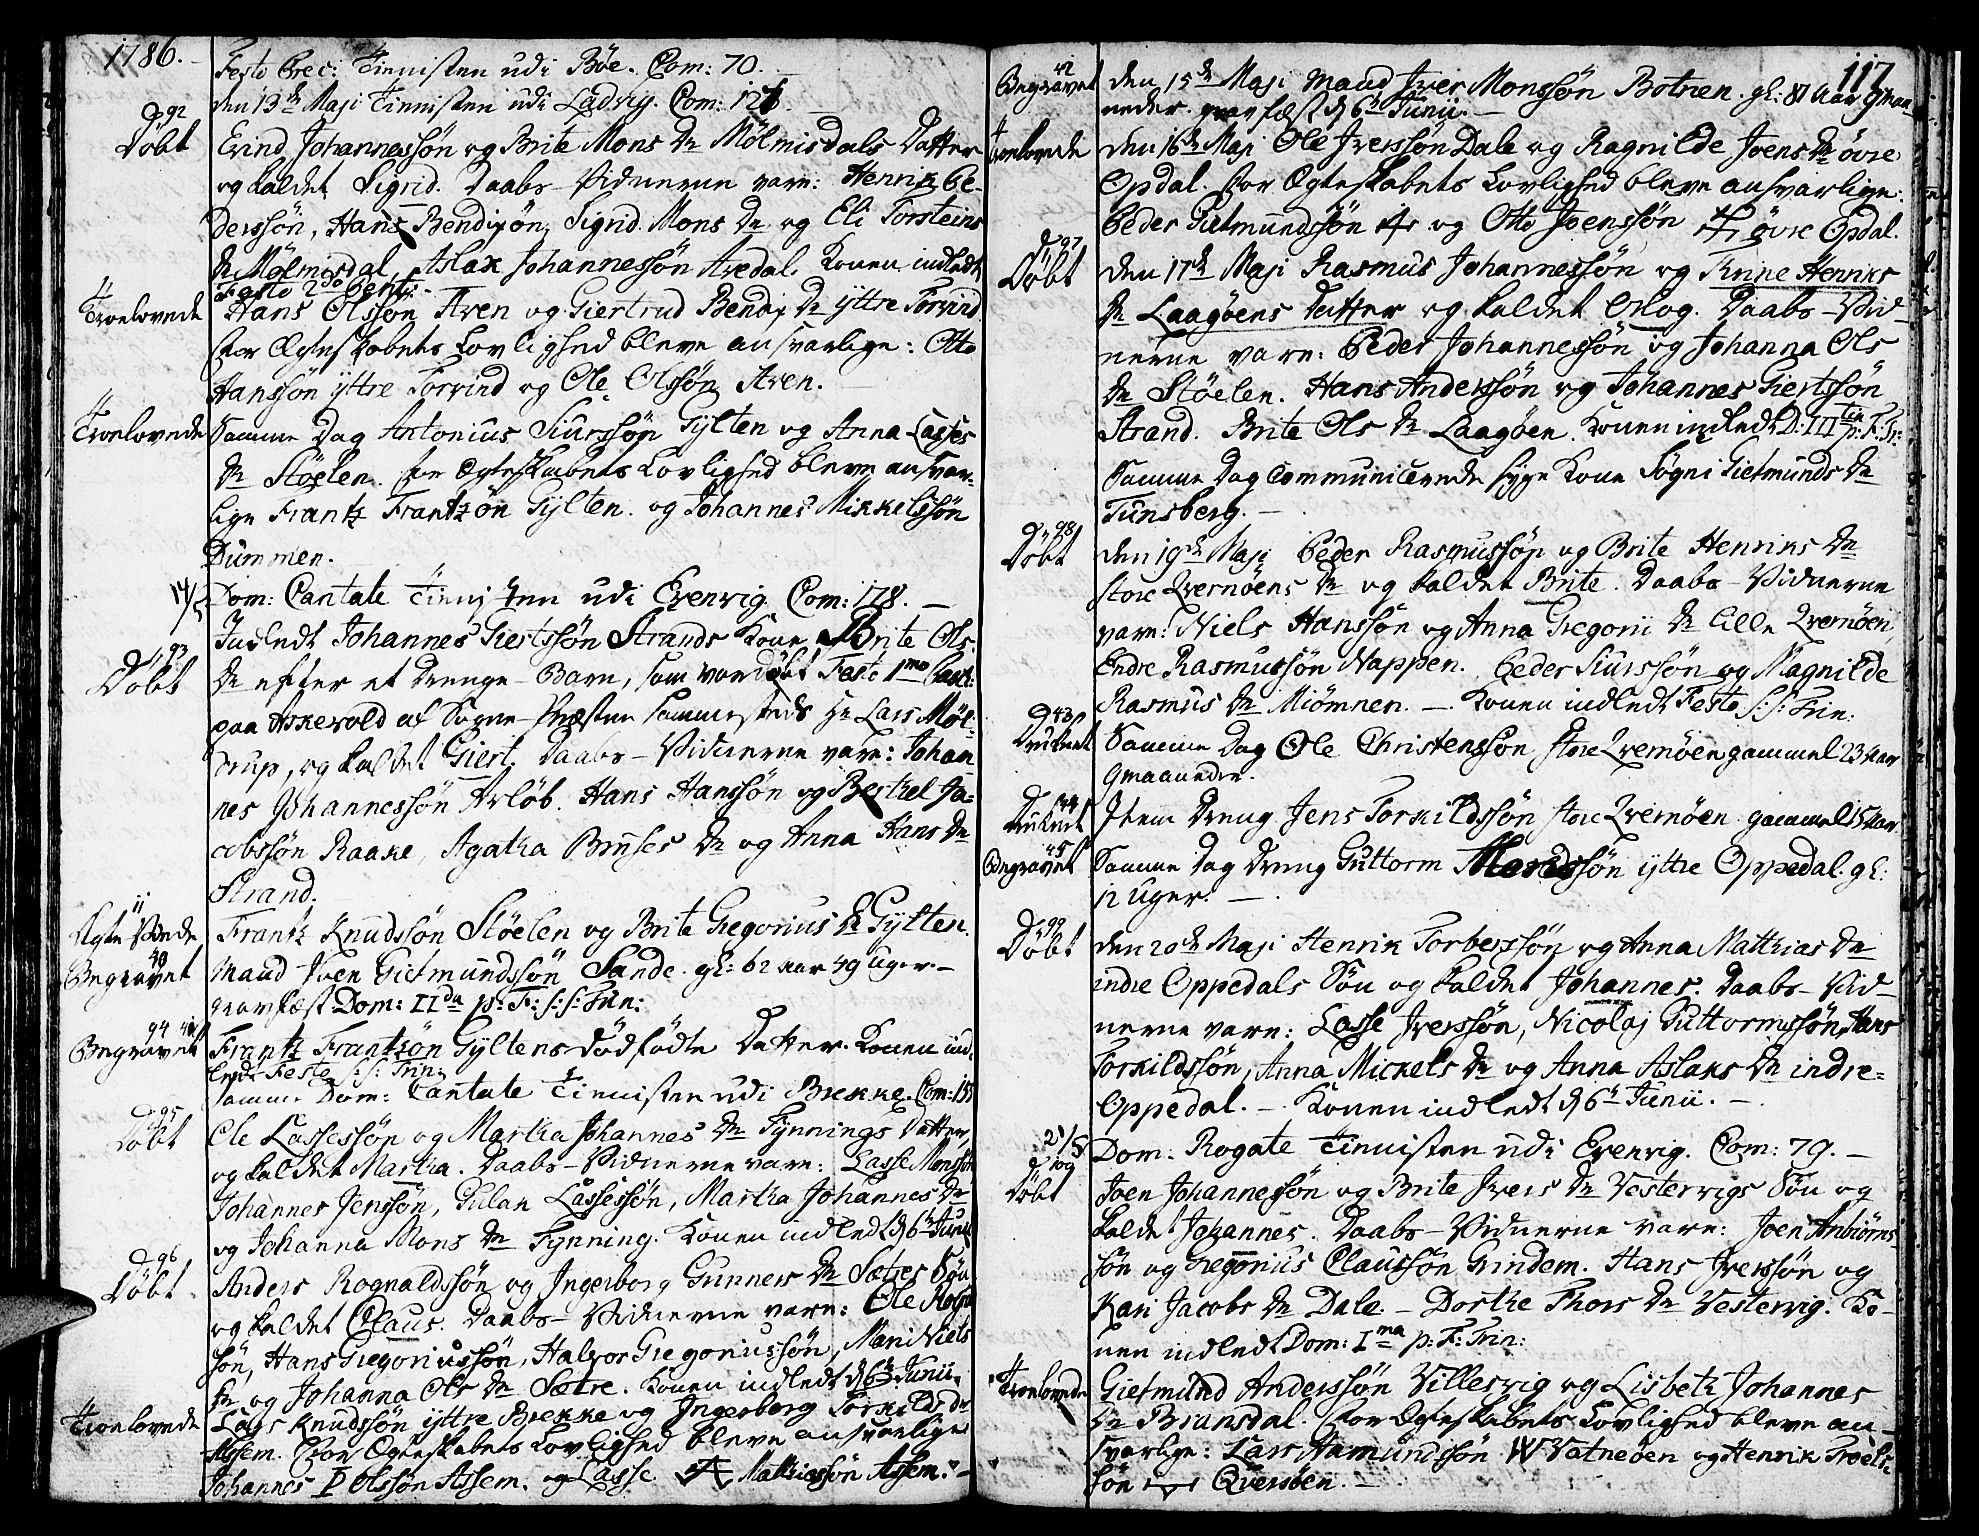 1786.
Festo Prec: Tienisten udi Böe. Com: 70.
den 13de Maji Tienisten udi Ladvig. Com: 126
92
Döbt
Erind Johannessön og Brite Mons Dr Mölmisdals Datter
og kaldet Sigrid. Daabs-Vidnerne vare: Henrik Pe-
derssön, Hans Bendixön, Sigrid Mons Dr og Eli Torsteins
Dr Mölmisdal, Aslak Johannessön Avedal. Konen indledt
Festo 2do Pent:
Troelovede
Hans Olssön Aven og Giertrud Bendix Dr yttre Torvind
for Ægteskabets Lovlighed bleve ansvarlige: Otto
Hanssön yttre Torvind og Ole Olssön Aven.
Troelovede
Samme Dag Antonius Siurssön Gylten og Anna Lasses
Dr Stöelen. for Ægteskabets Lovlighed bleve ansvar-
lige Frantz Frantzön Gylten. og Johannes Mikkelssön
Dummen.
14/5
Dom: Cantate Tienisten udi Evenvig. Com: 178.
Indledt Johannes Giertssön Strands Kone Brite Ols
93
Döbt
Dr efter et Drenge-Barn, som var döbt Festo 1mo Pasch:
paa Askevold af Sogne-Præsten sammesteds Hr Lars Möl-
drup, og kaldet Giert. Daabs-Vidnerne vare: Johan
nes Johannessön Arlöb. Hans Hanssön og Berthel Ja-
cobssön Raake, Agatha Bruses Dr og Anna Hans Dr
Strand.
11
Ægte Viede
Frantz Knudssön Stöelen og Brite Gregorius Dr Gylten.
40
Begravet
Mand Joen Gietmundssön Sande. gl: 62 Aar 49 Uger.
gravfæst Dom: IIda p: F: S:S: Trin:
94 41
Begravet
Frantz Frantzön Gyltens dödfödte Datter. Konen ind-
ledt Festo S:S: Trin:
Samme Dom: Cantate Tienisten udi Brekke. Com: 155
95
Döbt
Ole Lassessön og Martha Johannes Dr Fynnings Datter,
og kaldet Martha. Daabs-Vidnerne vare: Lasse Monssön
Johannes Jenssön, Gulak Lassessön, Martha Johannes Dr
og Johanna Mons Dr Fynning. Konen indledt d 6te Junii
96
Döbt
Anders Rognaldssön og Ingerborg Gunners Dr Sætres Sön
og kaldet Claus. Daabs-Vidnerne vare: Ole
sön, Hans Gregoriussön, Halvor Gregoriussön, Mari Niels
Dr og Johanna Ols Dr Sætre. Konen indledt d 6te Junii.
Troelovede
Lars Knudssön yttre Brekke og Ingerborg Torkilds Dr
Assem. for Ægteskabets Lovlighed bleve ansvarlige
Johannes Olssön Assem. og Lasse Mathiessön Assem.
117
42
Begravet
den 15de Maji Mand Iver Monssön Botnen. gl: 81 Aar 9 Maa-
neder. gravfæst d 6te Junii.
Troelovede
den 16de Maji Ole Iverssön Dale og Ragnilde Joens Dr övre
Opdal. for Ægteskabets Lovlighed bleve ansvarlige:
Peder Gietmundssön og Otto Joenssön övre Opdal.
97
Döbt
den 17de Maji Rasmus Johannessön og Trine Henriks
Dr Laagöens Datter og kaldet Oslog. Daabs-Vid-
nerne vare: Peder Johannessön og Johanna Ols
Dr Stöelen. Hans Anderssön og Johannes Giertssön
Strand. Brite Ols Dr Laagöen. Konen indledt D: III p: F: Tr:
Samme Dag communicerede syge Kone Sögni Gietmunds Dr
Tunsberg.
98
Döbt
den 19de Maji Peder Rasmussön og Brite Henriks Dr
store Qvernöens Dr og kaldet Brite. Daabs-Vidnerne
vare: Niels Hanssön og Anna Gregorii Dr lille Qvernöen,
Endre Rasmussön Nappen. Peder Siurssön og Magnilde
Rasmus Dr Miömnen. Konen indledt Festo S:S: Trin:
43
Druknet
Samme Dag Ole Christenssön store Qvernöen gammel 23 Aar
9 maaneder.
44
Druknet
Item Dreng Jens Torkildssön store Qvernöen gammel 15 Aar
45
Begravet
Samme Dag Dreng Guttorm sön yttre Oppedal. gl:
12 Uger.
99
Döbt
den 20de Maji Henrik Torberssön og Anna Matthias Dr
indre Oppedals Sön og kaldet Johannes. Daabs-Vid-
nerne vare: Lasse Iverssön, Nicolaj Guttormssön, Hans
Torkildssön, Anna Mickels Dr og Anna Aslaks Dr indre-
Oppedal. Konen indledt d 6te Junii.
21/5
Dom: Rogate Tienisten udi Evenvig. Com: 79.
100
Döbt
Joen Johannessön og Brite Ivers Dr Vestervigs Sön og
kaldet Johannes. Daabs-Vidnerne vare: Joen Anbiörns-
sön og Gregorius Claussön Grindem. Hans Iverssön og
Kari Jacobs Dr Dale. Dorthe Thors Dr Vestervig. Ko-
nen indledt Dom: Ima p: F: Trin:
Troelovede
Gietmund Anderssön Villesvig og Lisbeth Johannes
Dr Bransdal. for Ægteskabets Lovlighed bleve an-
svarlige: Lars Amundssön Vatneöen og Henrik Troels-
sön Qversöen.